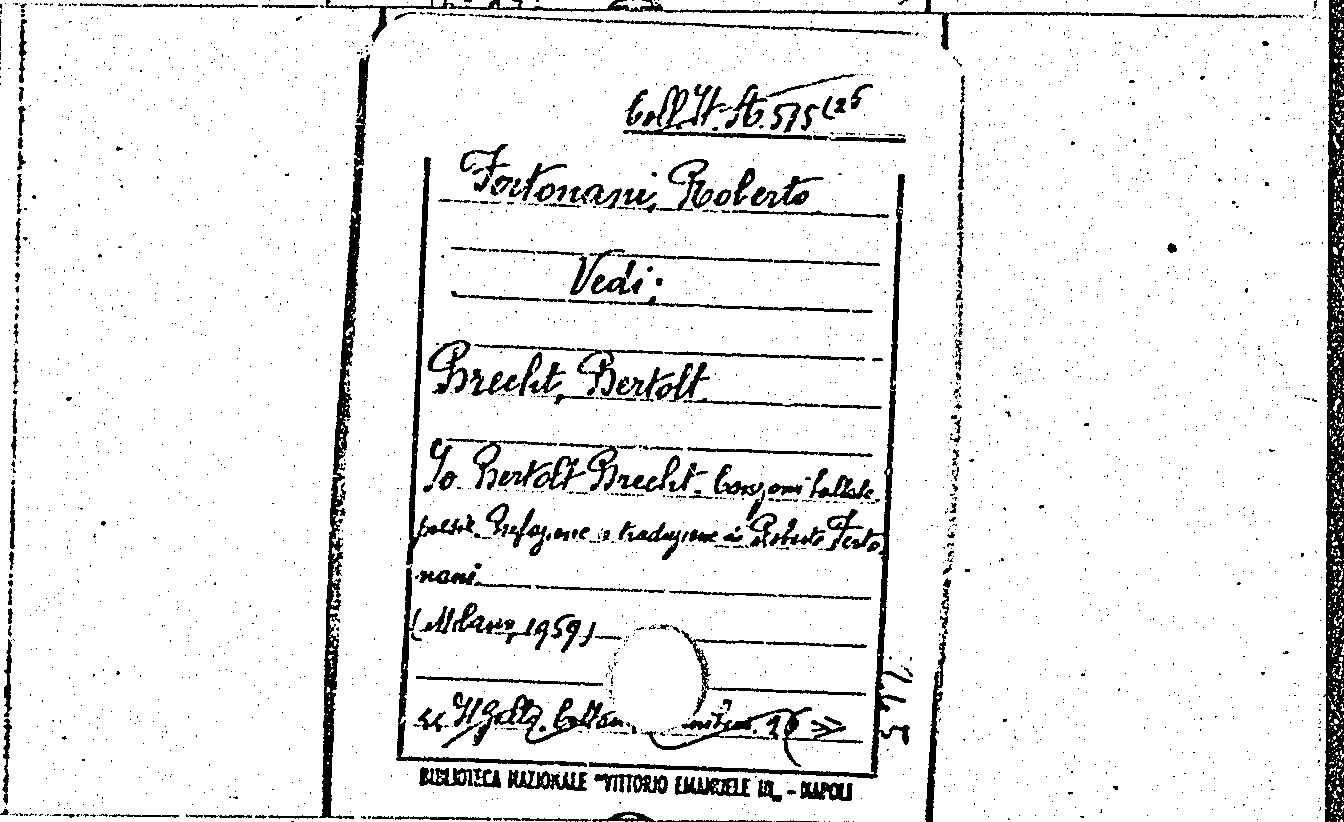 Coll. It. St. 575 (25
Fortonani, Roberto
Vedi:
Brecht, Bertolt
Io Bertolt Brecht. Canzoni ballate
poesie. Prefazione e traduzione di Roberto Ferto
nani
(Milano, 1959)
« Il Gallo.
BIBLIOTECA NAZIONALE "VITTORIO EMANUELE III" - NAPOLI